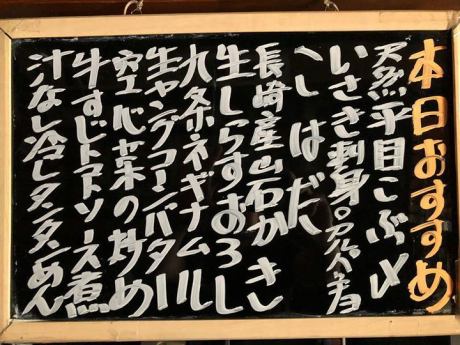 本日おすすめ
天然平目こぶ〆
いさき刺身
こしはだ
長崎産山石がき
生しらすおろし
九条ネギナムル
生ヤングコーンバター
空心菜の炒め
牛すじトマトソース煮
汁なし冷しタンタンめん